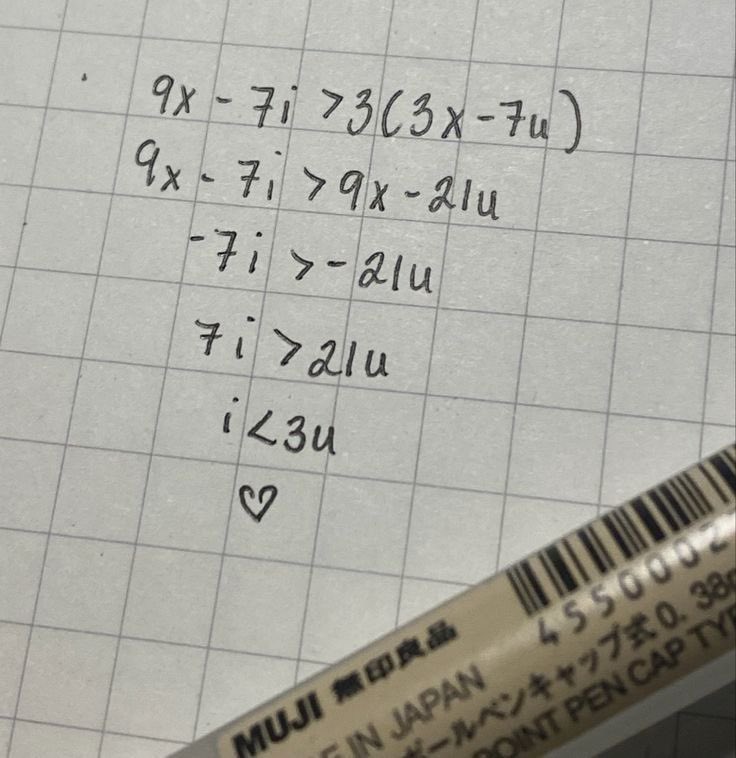 9x - 7i > 3(3x - 7u)
9x - 7i > 9x - 21u
-7i > -21u
7i > 21u
i < 3u
♡
4550002
MUJI 無印良品
IN JAPAN
ボールペンキャップ式 0.38
POINT PEN CAP TY